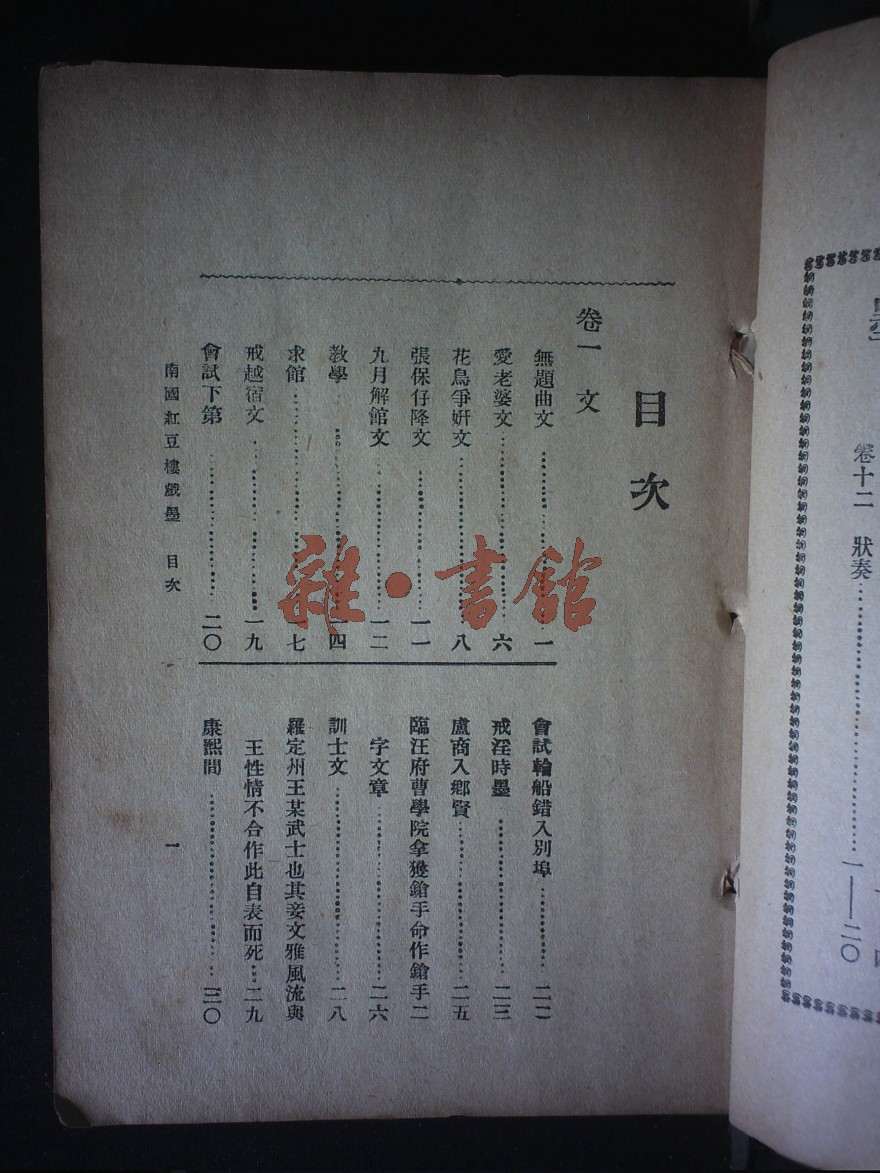 目次
卷一 文
無題曲文…………一
愛老婆文…………六
花鳥爭妍文…………八
張保仔降文…………一一
九月解館文…………一二
教學…………一四
求館…………一七
戒越宿文…………一九
會試下第…………二〇
會試輪船錯入別埠…………二二
戒淫時墨…………二三
盧商入鄉賢…………二五
臨汪府曹學院拿獲鎗手命作鎗手二
字文章…………二六
訓士文…………二八
羅定州王某武士也其妾文雅風流與
王性情不合作此自表而死…二九
康熙間…………三〇
南國紅豆樓戲墨 目次 一
卷十二 狀奏…………一——二〇
雜·書館